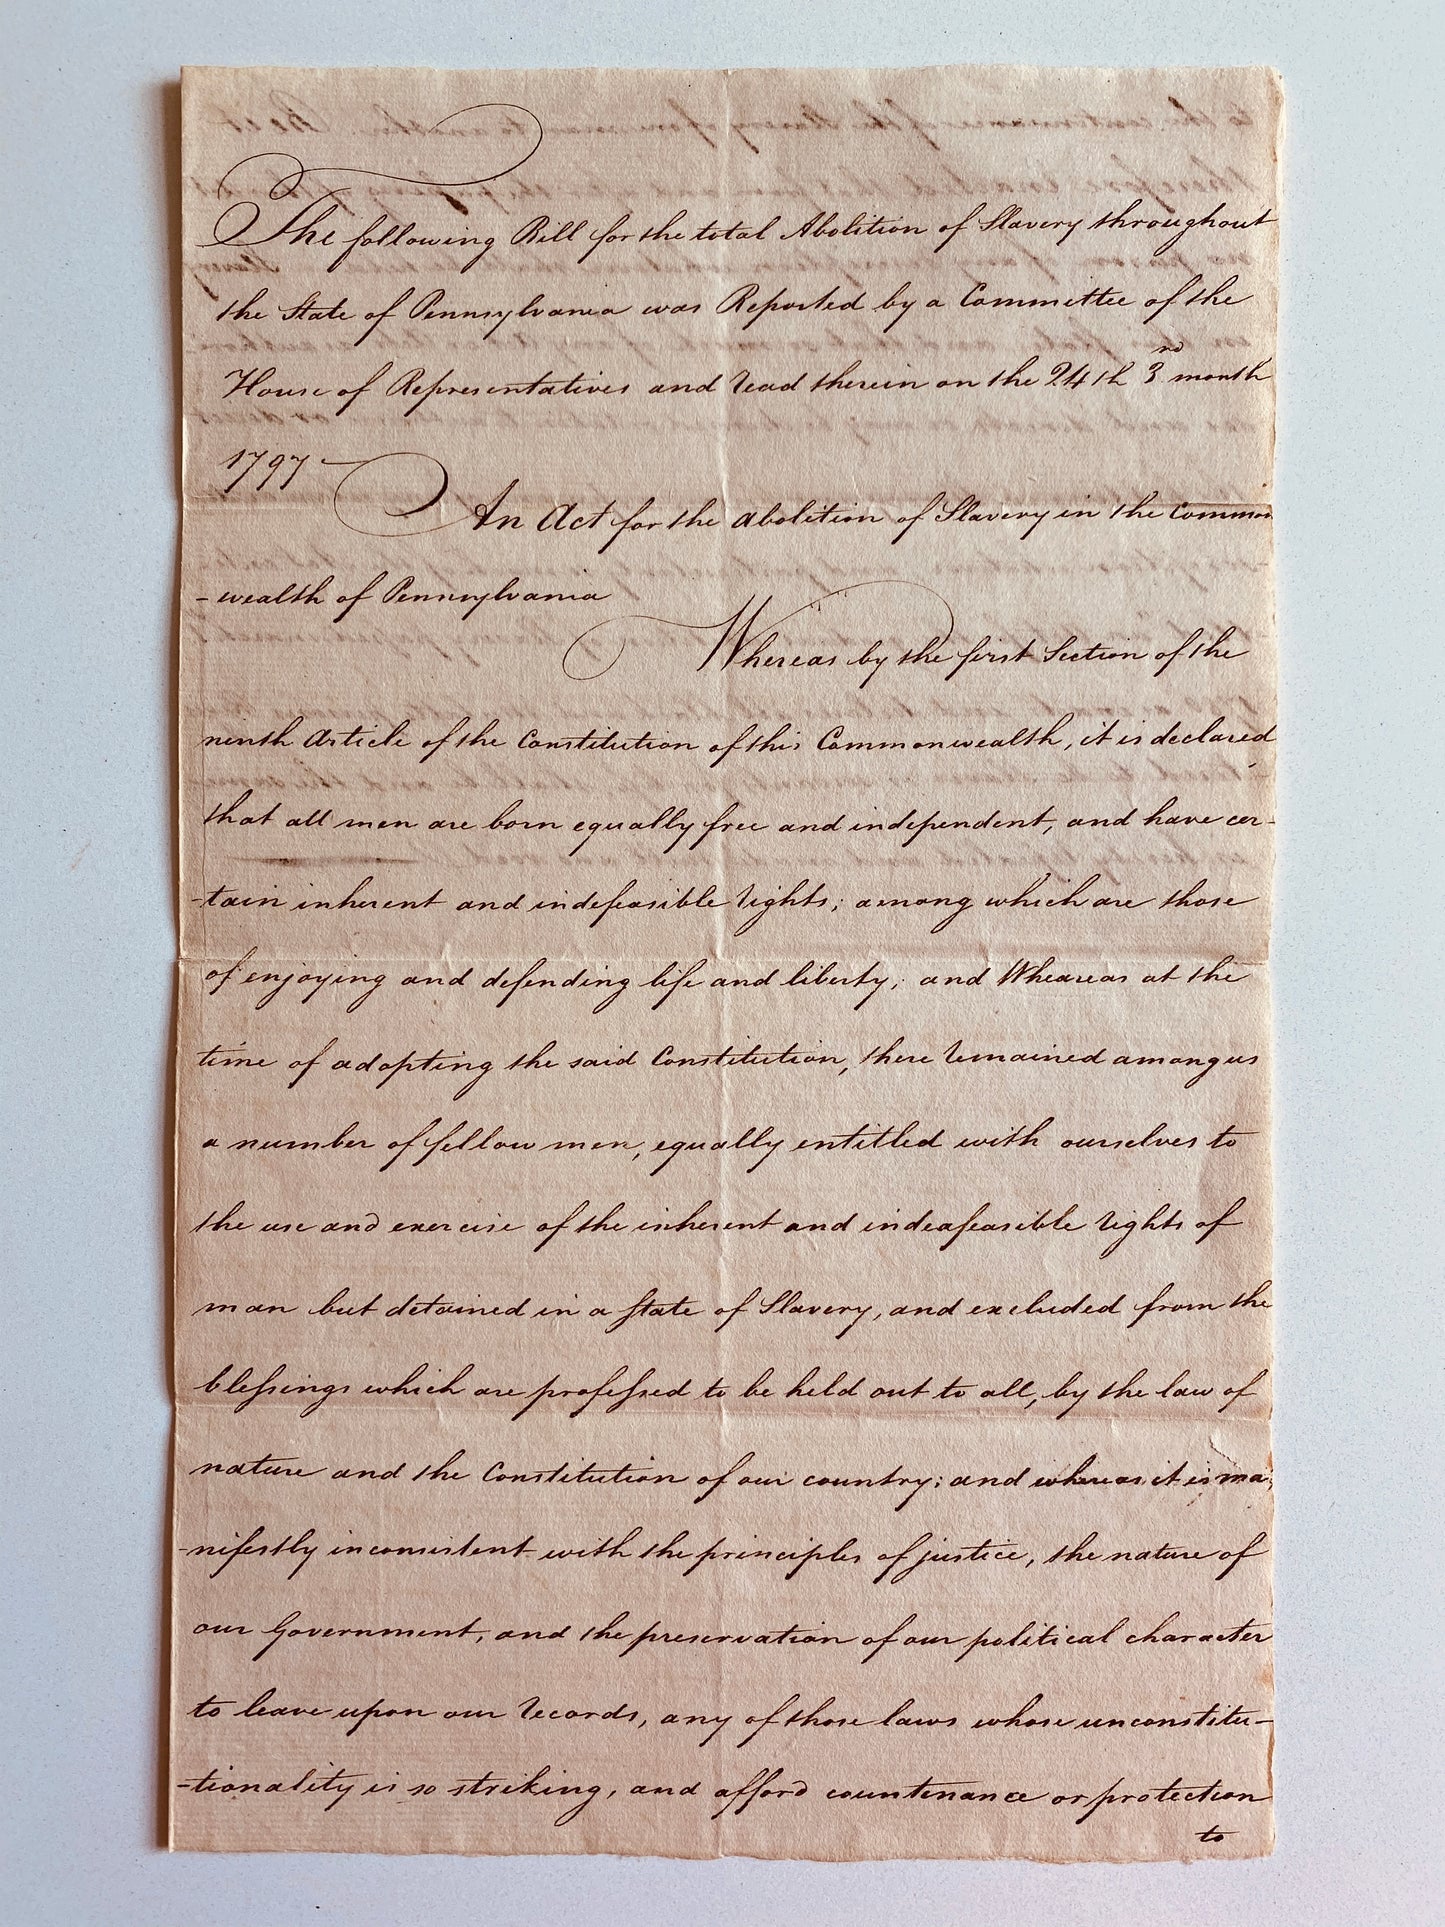 The following Bill for the total Abolition of Slavery throughout
the State of Pennsylvania was Reported by a Committee of the
House of Representatives and read therein on the 24th 3rd month
1797
An Act for the abolition of Slavery in the Common
-wealth of Pennsylvania
Whereas by the first Section of the
ninth Article of the Constitution of this Commonwealth, it is declared
that all men are born equally free and independent, and have cer-
-tain inherent and indefeasible rights; among which are those
of enjoying and defending life and liberty; and Wheareas at the
time of adopting the said Constitution, there remained among us
a number of fellow men, equally entitled with ourselves to
the use and exercise of the inherent and indeafeasible rights of
man but detained in a state of Slavery, and excluded from the
blessings which are professed to be held out to all, by the law of
nature and the Constitution of our country; and whereas it is ma-
-nifestly inconsistent with the principles of justice, the nature of
our Government, and the preservation of our political character
to leave upon our records, any of those laws whose unconstitu-
-tionality is so striking, and afford countenance or protection
to